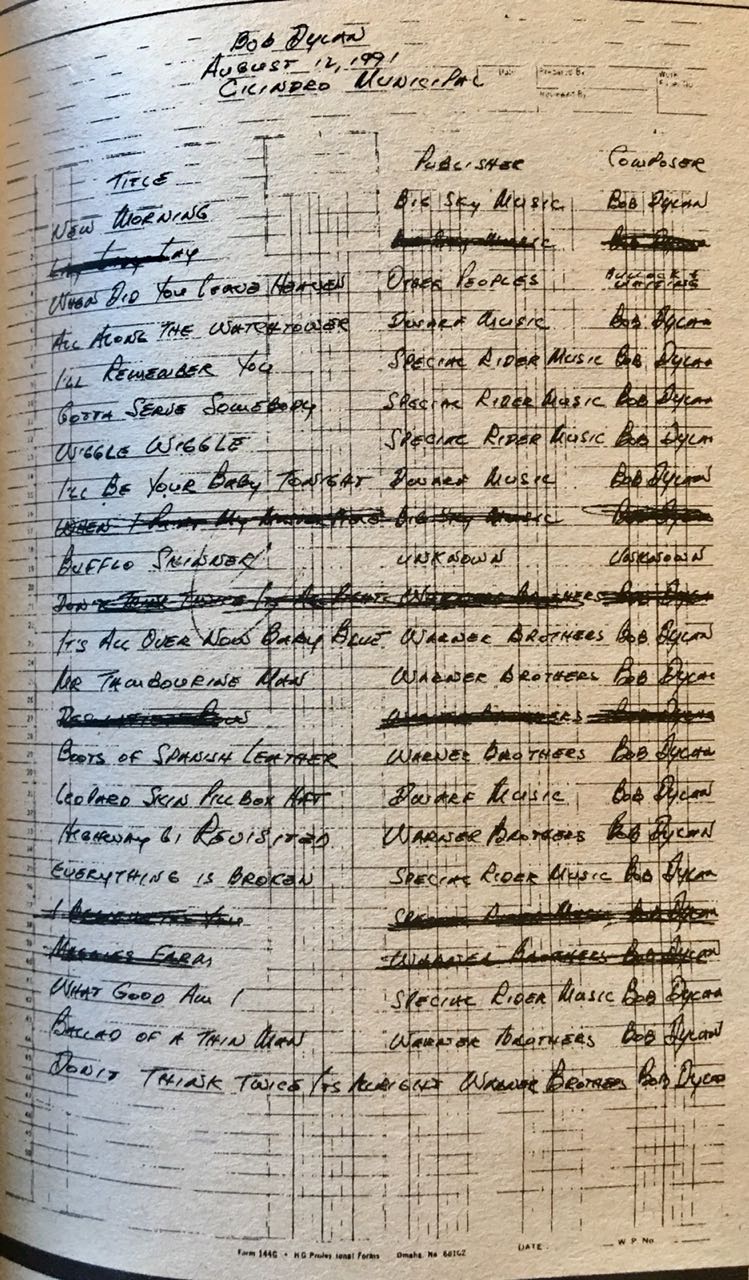 Bob Dylan
August 12, 1991
Cilindro Municipal
Date Prepared By
Reviewed By
Title Publisher Composer
New Morning Big Sky Music Bob Dylan
Lay Lady Lay Big Sky Music Bob Dylan
When Did You Leave Heaven Other Peoples Bullock & Whiting
All Along The Watchtower Dwarf Music Bob Dylan
I'll Remember You Special Rider Music Bob Dylan
Gotta Serve Somebody Special Rider Music Bob Dylan
Wiggle Wiggle Special Rider Music Bob Dylan
I'll Be Your Baby Tonight Dwarf Music Bob Dylan
When I Paint My Big Sky Music Bob Dylan
Bufflo Skinner Unknown Unknown
Don't Think Twice Its All Right Warner Brothers Bob Dylan
It's All Over Now Baby Blue Warner Brothers Bob Dylan
Mr Tambourine Man Warner Brothers Bob Dylan
Row Warner Brothers Bob Dylan
Boots of Spanish Leather Warner Brothers Bob Dylan
Leopard Skin Pill Box Hat Dwarf Music Bob Dylan
Highway 61 Revisited Warner Brothers Bob Dylan
Everything is Broken Special Rider Music Bob Dylan
I Believe You Special Rider Music Bob Dylan
Maggies Farm Warner Brothers Bob Dylan
What Good Am I Special Rider Music Bob Dylan
Ballad of a Thin Man Warner Brothers Bob Dylan
Don't Think Twice Its Alright Warner Brothers Bob Dylan
Form 144G • HG Professional Forms Omaha, Ne 68102 DATE W. P. No.